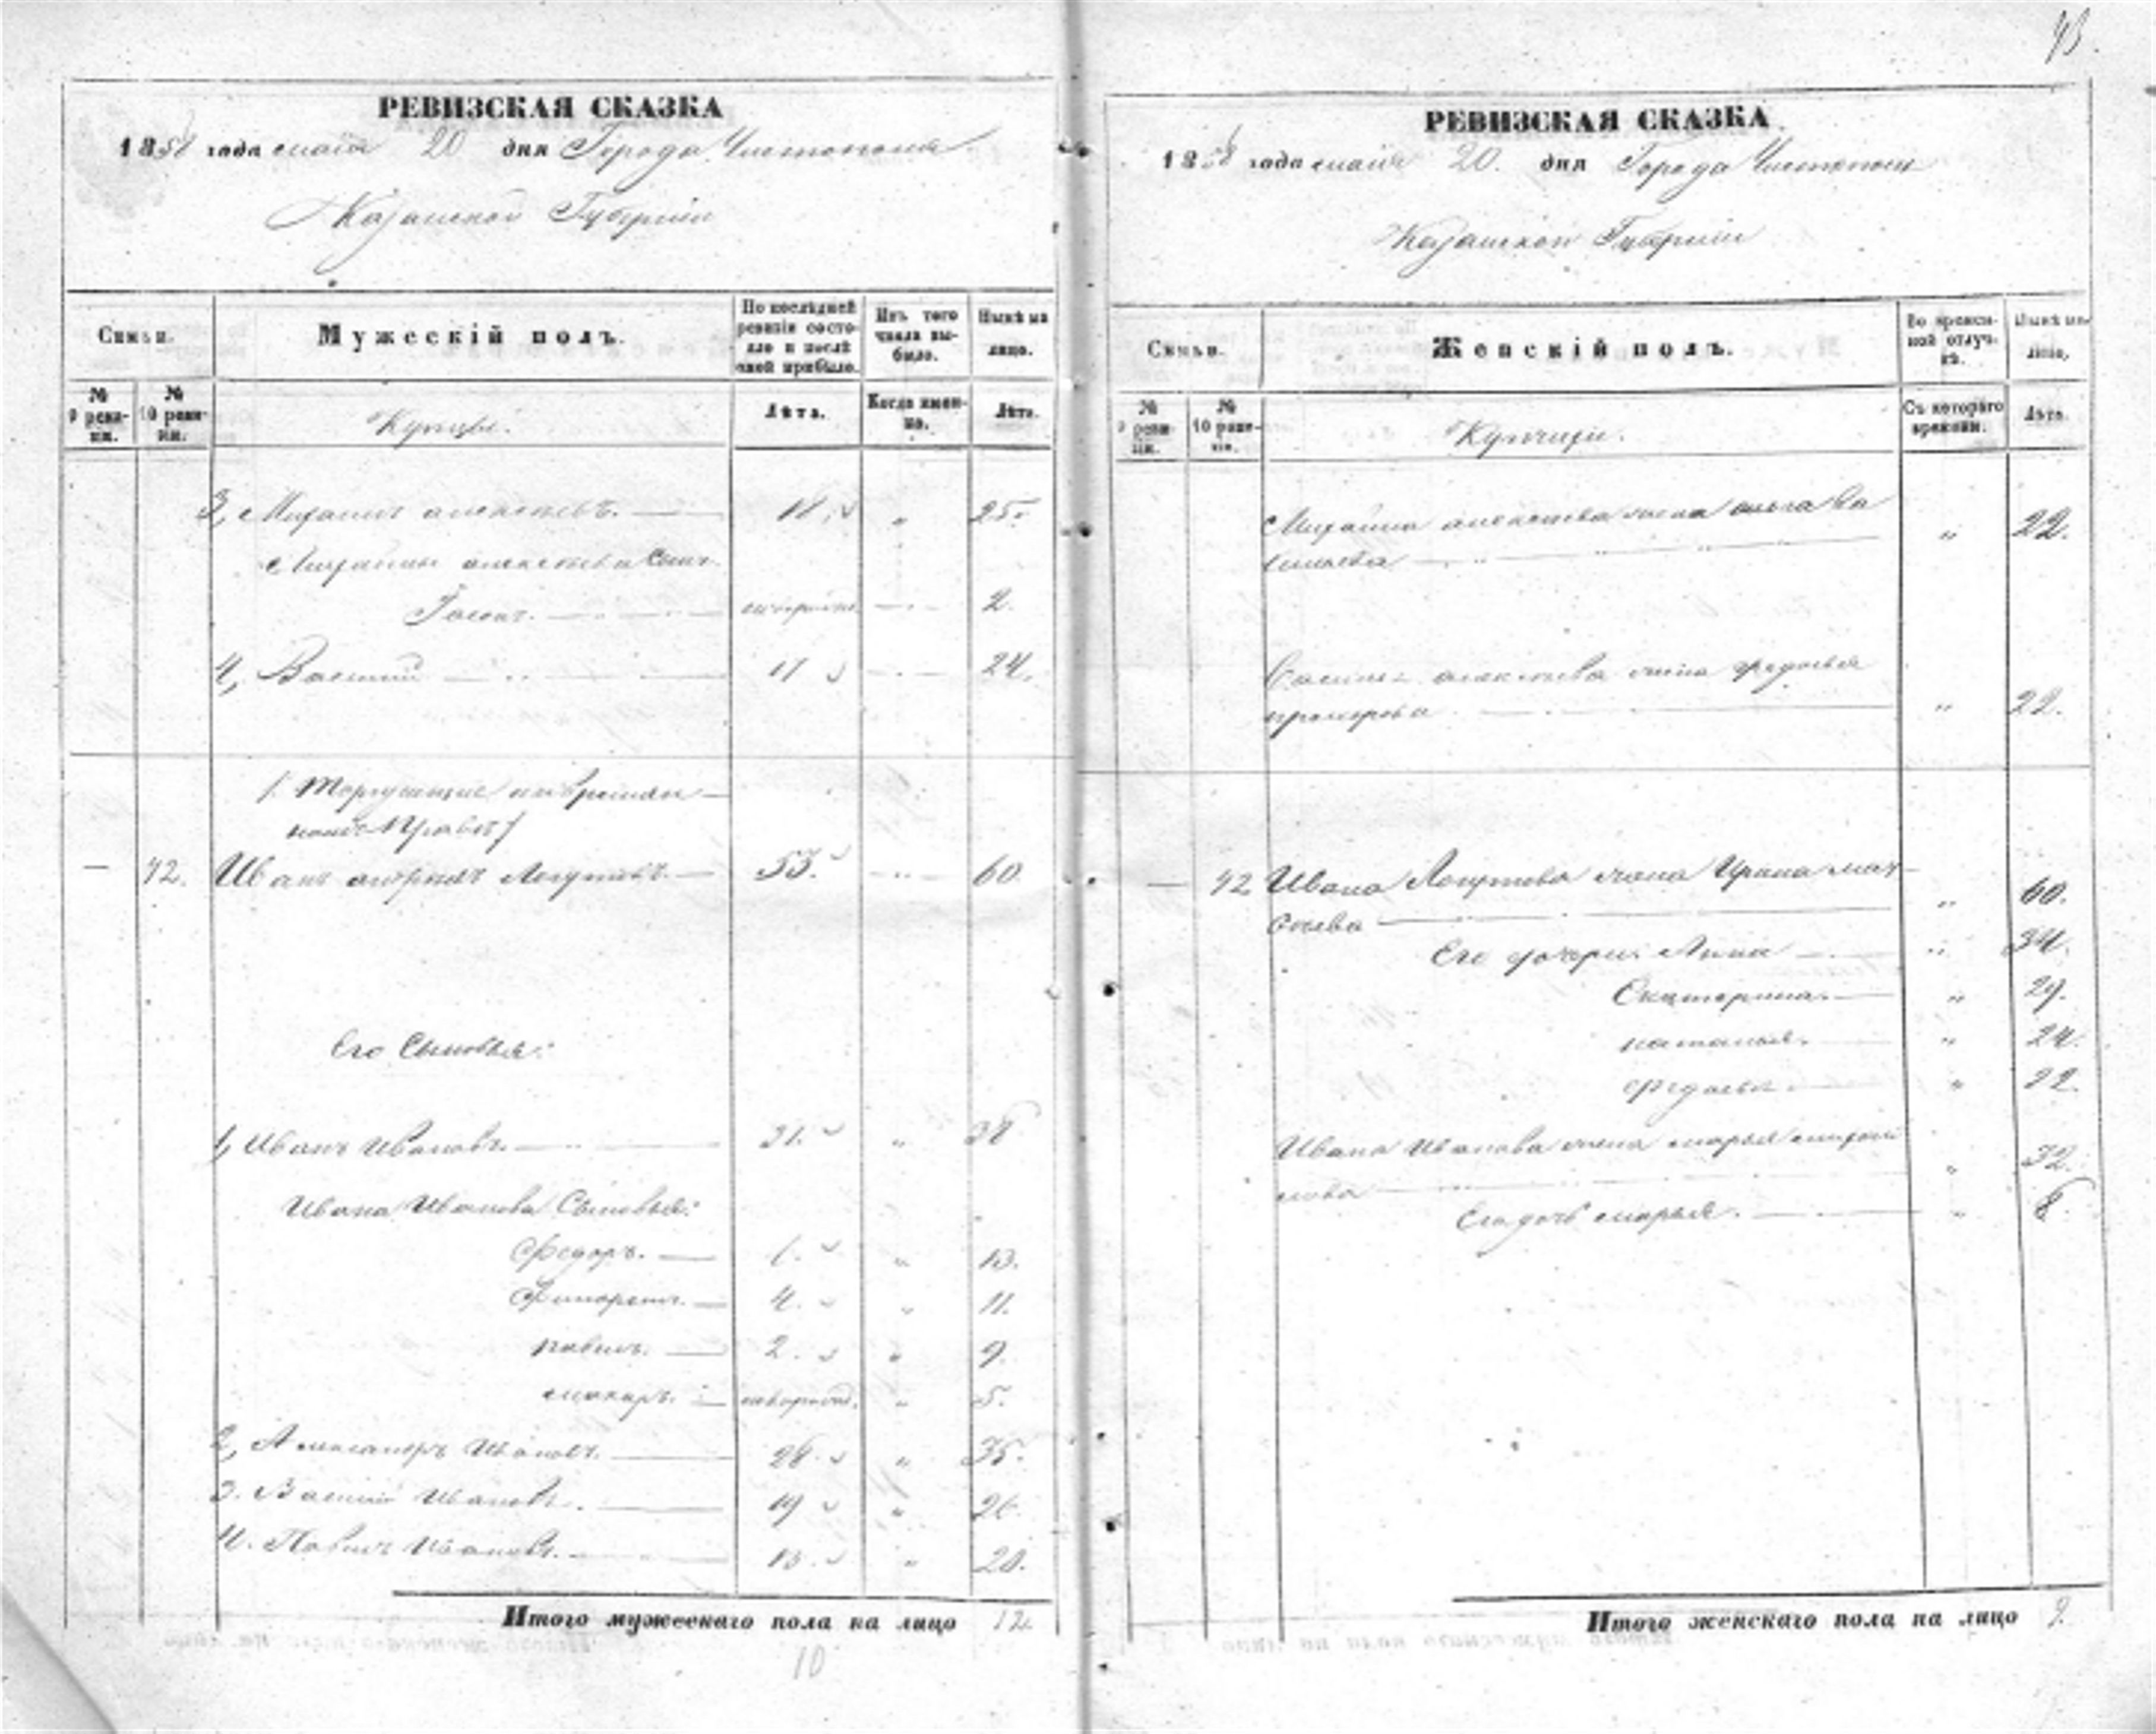 43.
РЕВИЗСКАЯ СКАЗКА
1858 года маія 20 дня Города Чистополя
Казанской Губерніи
Семьи.
Мужескій полъ.
По послѣдней ревизіи состояло и послѣ оной прибыло.
Изъ того числа выбыло.
Нынѣ на лицо.
№ 9 ревизіи.
№ 10 ревизіи.
Купцы.
Лѣта.
Когда именно.
Лѣта.
3, Михаилъ Алексѣевъ. 25.
Михаилы Алексѣева Сынъ
2.
4, Василій 24.
/ Торгующіе
правъ /
— 42. Иванъ Логутовъ. 53. 60
Его Сыновья:
1, Иванъ Ивановъ. 31. " 38
Ивана Иванова Сыновья:
Федоръ. " 13.
4. " 11.
павелъ. 2. " 9.
макаръ. новорожд. " 5.
2, Александръ Ивановъ. 28. " 35.
3. Василій Ивановъ. 19 " 26.
4. Павелъ Ивановъ. 13. " 20.
Итого мужескаго пола на лицо 12.
10
РЕВИЗСКАЯ СКАЗКА
1858 года маія 20. дня Города Чистополя
Казанской Губерніи
Семьи.
Женскій полъ.
Во временной отлучкѣ.
Нынѣ на лицо.
№ 9 ревизіи.
№ 10 ревизіи.
Купчихи.
Съ котораго времени.
Лѣта.
Михайла Алексѣева жена ольга Ва
сильева " 22.
Василья Алексѣева жена федосья
прохорова " 22.
— 42 Ивана Логутова жена Ирина мат
вѣева " 60.
Его дочери: Анна " 34.
Екатерина. " 29.
наталья. " 24.
федосья. " 22.
Ивана Иванова жена марья " 32.
Его дочь марья. " 8.
Итого женскаго пола на лицо 9.